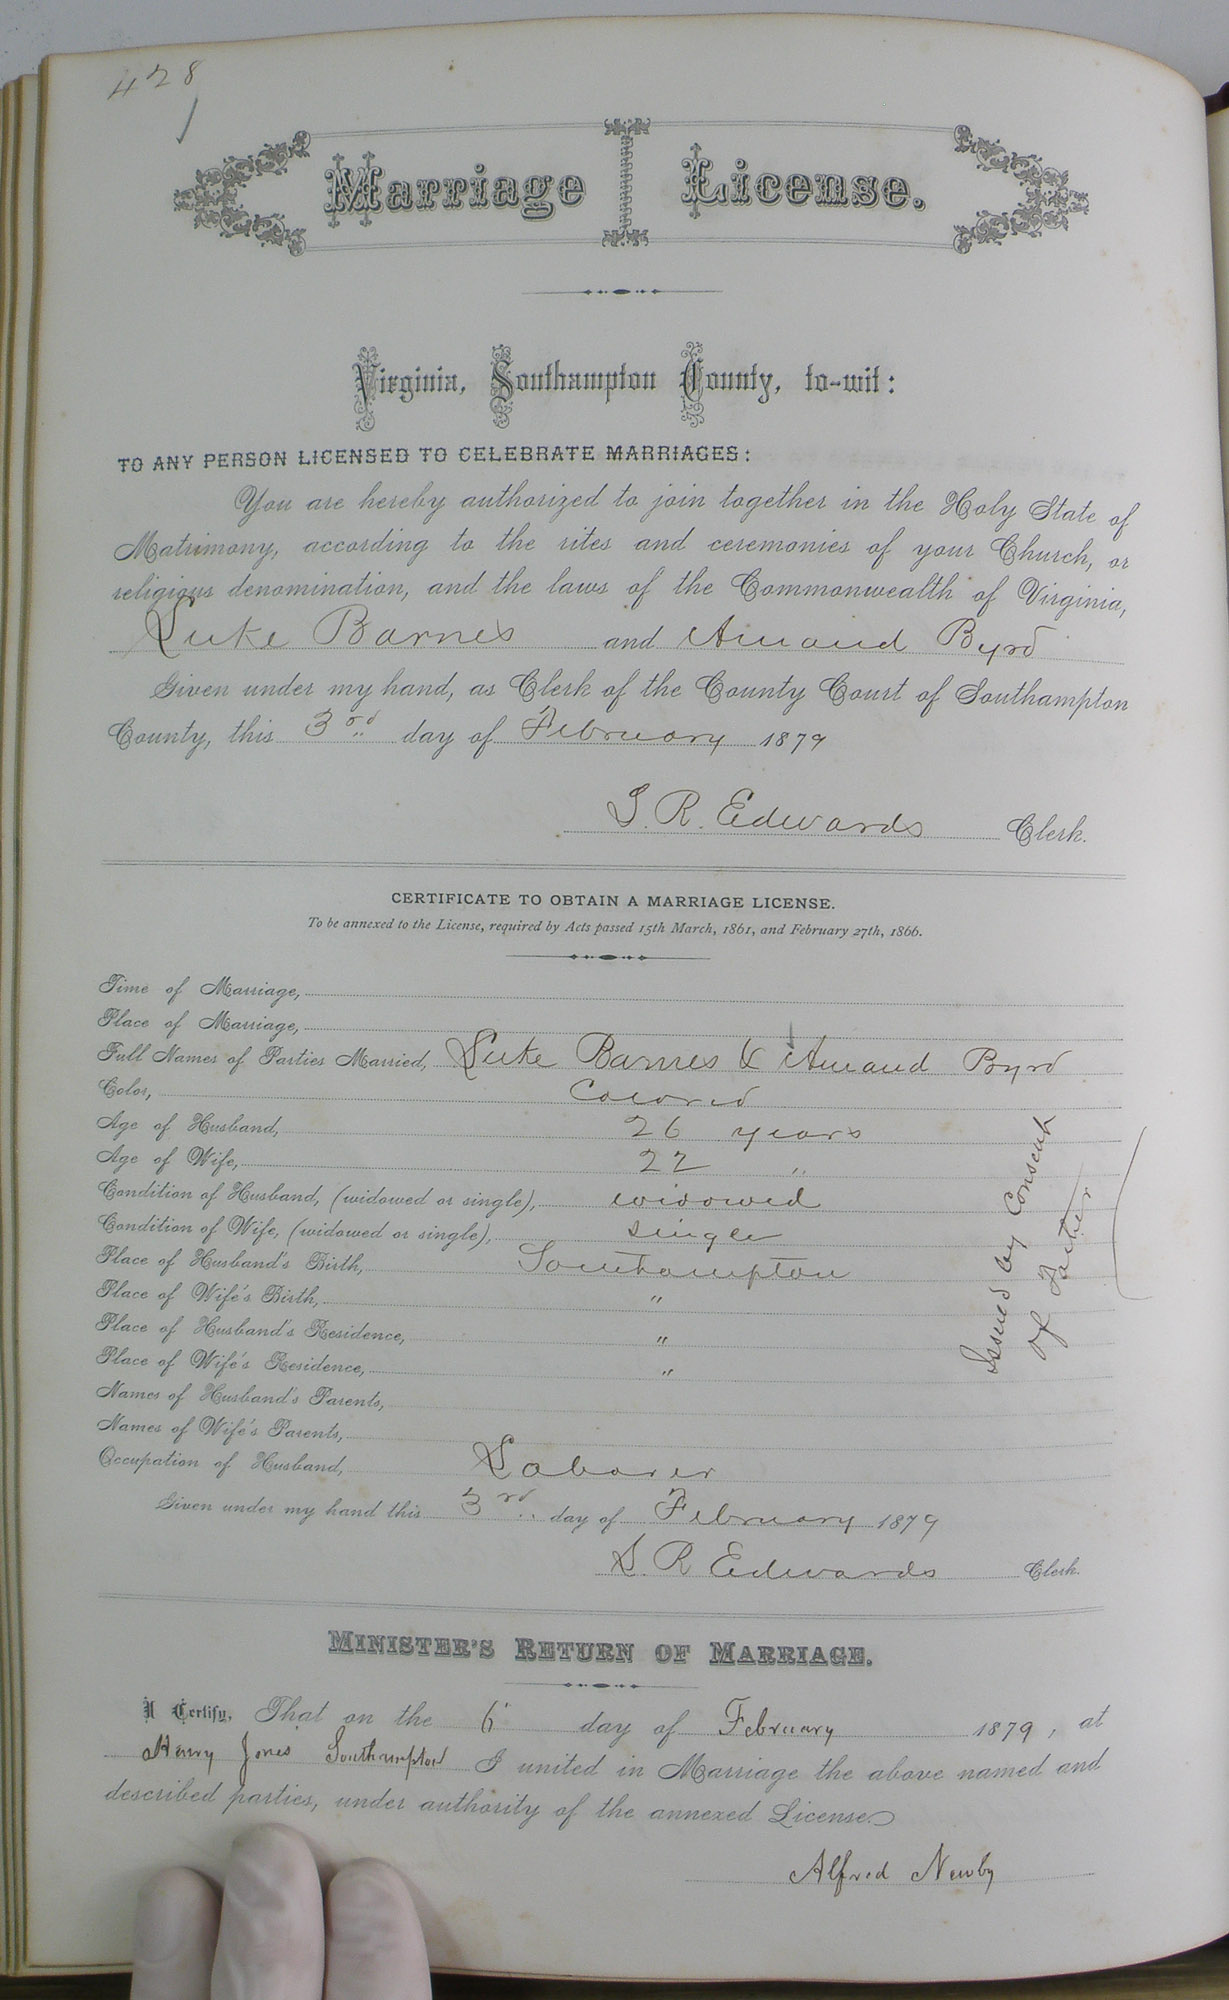 428
Marriage License.
Virginia, Southampton County, to-wit:
TO ANY PERSON LICENSED TO CELEBRATE MARRIAGES:
You are hereby authorized to join together in the Holy State of
Matrimony, according to the rites and ceremonies of your Church, or
religious denomination, and the laws of the Commonwealth of Virginia,
Luke Barnes and Amand Byrd
Given under my hand, as Clerk of the County Court of Southampton
County, this 3rd day of February 1879
S. R. Edwards Clerk.
CERTIFICATE TO OBTAIN A MARRIAGE LICENSE.
To be annexed to the License, required by Acts passed 15th March, 1861, and February 27th, 1866.
Time of Marriage,
Place of Marriage,
Full Names of Parties Married, Luke Barnes & Amand Byrd
Color, Colored
Age of Husband, 26 years
Age of Wife, 22 "
Condition of Husband, (widowed or single), widowed
Condition of Wife, (widowed or single), single
Place of Husband's Birth, Southampton
Place of Wife's Birth, "
Place of Husband's Residence, "
Place of Wife's Residence, "
Names of Husband's Parents,
Names of Wife's Parents,
Occupation of Husband, Laborer
Issued by consent
of Father
Given under my hand this 3rd day of February 1879
S. R Edwards Clerk.
MINISTER'S RETURN OF MARRIAGE.
I Certify, That on the 6 day of February 1879, at
Henry Jones Southampton I united in Marriage the above named and
described parties, under authority of the annexed License.
Alfred Newby